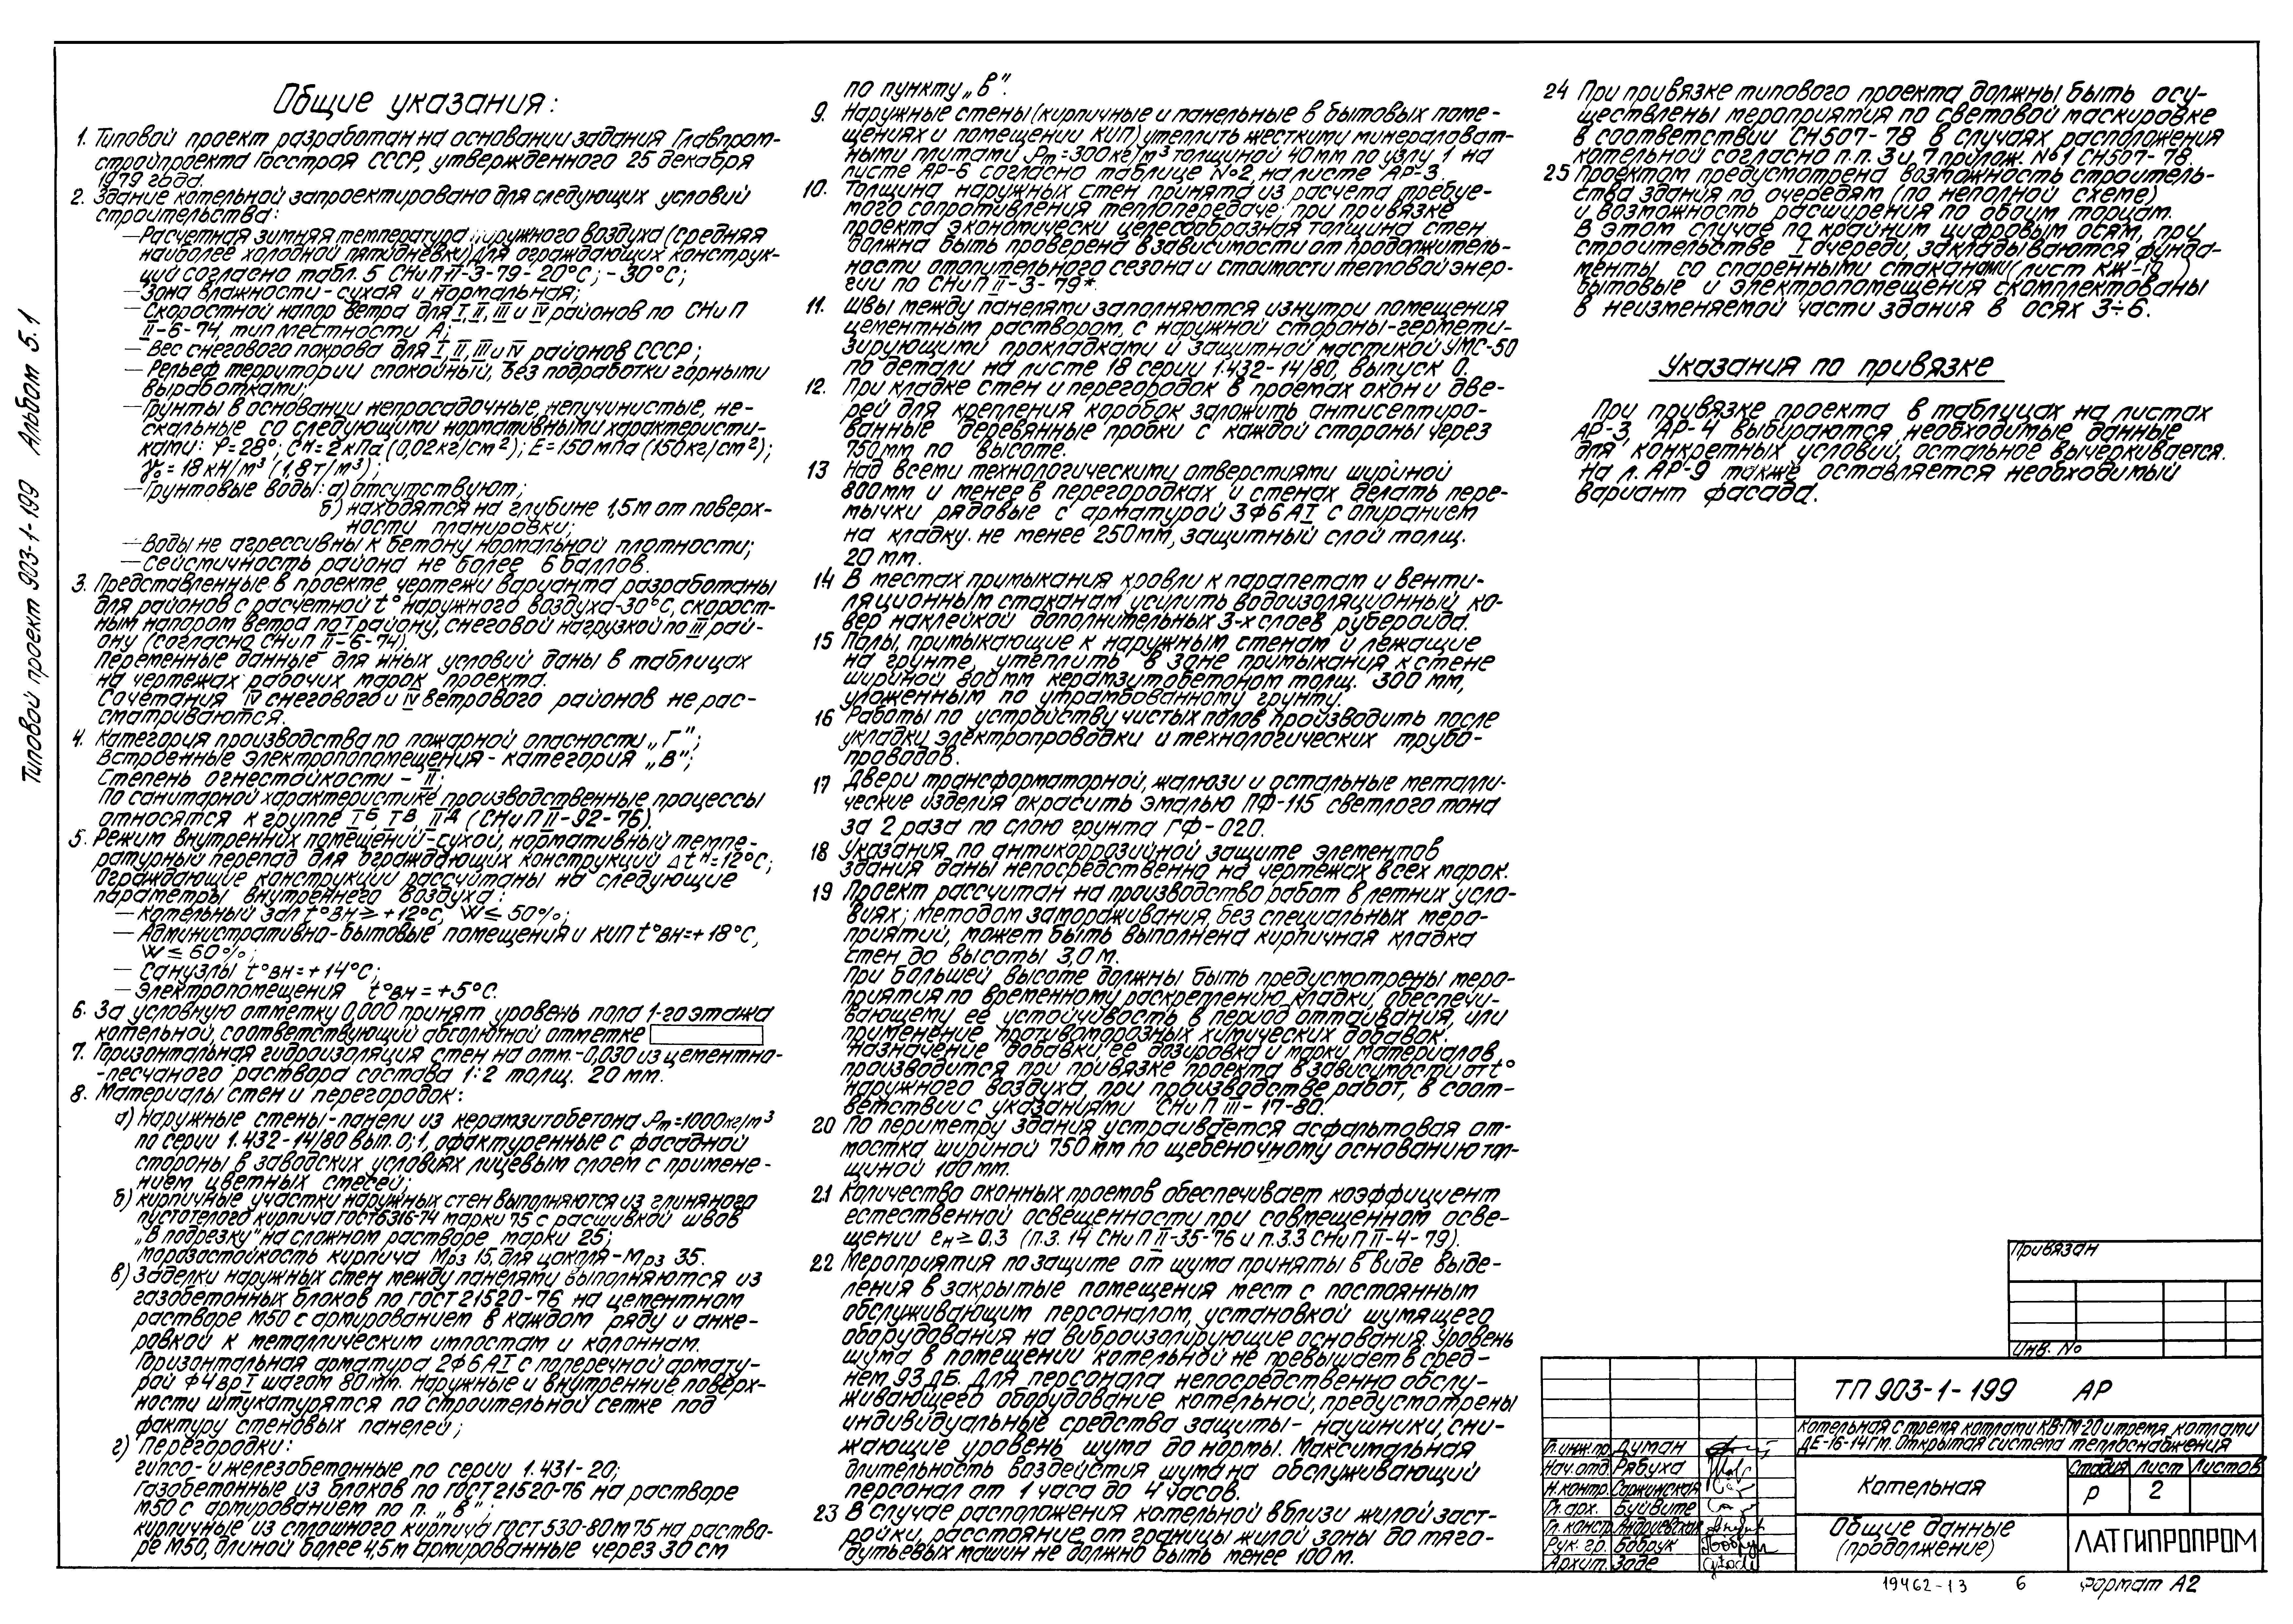 Типовой проект 903-1-199 Альбом 5.1
Общие указания:
1. Типовой проект разработан на основании задания Главпром-
стройпроекта Госстроя СССР, утвержденного 25 декабря
1979 года.
2. Здание котельной запроектировано для следующих условий
строительства:
— Расчетная зимняя температура наружного воздуха (средняя
наиболее холодной пятидневки) для ограждающих конструк-
ций согласно табл. 5 СНиП II-3-79 - 20°С; - 30°С;
— Зона влажности - сухая и нормальная;
— Скоростной напор ветра для I, II, III и IV районов по СНиП
II-6-74, тип местности А;
— Вес снегового покрова для I, II, III и IV районов СССР;
— Рельеф территории спокойный, без подработки горными
выработками;
— Грунты в основании непросадочные, непучинистые, не-
скальные со следующими нормативными характеристи-
ками: φ=28°; Сн=2кПа (0,02кг/см²); Е=150мпа (150кг/см²);
γ₀=18кН/м³ (1,8т/м³);
— Грунтовые воды: а) отсутствуют;
б) находятся на глубине 1,5м от поверх-
ности планировки;
— Воды не агрессивны к бетону нормальной плотности;
— Сейсмичность района не более 6 баллов.
3. Представленные в проекте чертежи варианта разработаны
для районов с расчетной t° наружного воздуха-30°С, скорост-
ным напором ветра по I району, снеговой нагрузкой по III рай-
ону (согласно СНиП II-6-74).
Переменные данные для иных условий даны в таблицах
на чертежах рабочих марок проекта.
Сочетания IV снегового и IV ветрового районов не рас-
сматриваются.
4. Категория производства по пожарной опасности „Г";
Встроенные электропопомещения - категория „В";
Степень огнестойкости - II;
По санитарной характеристике производственные процессы
относятся к группе Iб, Iв, IIд (СНиП II-92-76).
5. Режим внутренних помещений - сухой, нормативный темпе-
ратурный перепад для ограждающих конструкций Δtн=12°С;
Ограждающие конструкции рассчитаны на следующие
параметры внутреннего воздуха:
— Котельный зал t°вн ≥ +12°С, W ≤ 50%;
— Административно-бытовые помещения и КИП t°вн=+18°С,
W ≤ 60%;
— Санузлы t°вн=+14°С;
— Электропомещения t°вн=+5°С.
6. За условную отметку 0,000 принят уровень пола 1-го этажа
котельной, соответствующий абсолютной отметке
7. Горизонтальная гидроизоляция стен на отм.-0,030 из цементно-
-песчаного раствора состава 1:2 толщ. 20мм.
8. Материалы стен и перегородок:
а) Наружные стены - панели из керамзитобетона ρm=1000кг/м³
по серии 1.432-14/80 вып. 0;1, офактуренные с фасадной
стороны в заводских условиях лицевым слоем с примене-
нием цветных смесей;
б) кирпичные участки наружных стен выполняются из глиняного
пустотелого кирпича ГОСТ6316-74 марки 75 с расшивкой швов
„в подрезку" на сложном растворе марки 25;
морозостойкость кирпича Мрз 15, для цоколя - Мрз 35.
в) Заделки наружных стен между панелями выполняются из
газобетонных блоков по ГОСТ 21520-76 на цементном
растворе М50 с армированием в каждом ряду и анке-
ровкой к металлическим импостам и колоннам.
Горизонтальная арматура 2ф6АI с поперечной армату-
рой ф4врI шагом 80мм. Наружные и внутренние поверх-
ности штукатурятся по строительной сетке под
фактуру стеновых панелей;
г) Перегородки:
гипсо- и железобетонные по серии 1.431-20;
Газобетонные из блоков по ГОСТ 21520-76 на растворе
М50 с армированием по п. „в";
кирпичные из сплошного кирпича ГОСТ 530-80 М75 на раство-
ре М50, длиной более 4,5м армированные через 30 см
по пункту „в".
9. Наружные стены (кирпичные и панельные в бытовых поме-
щениях и помещении КИП) утеплить жесткими минераловат-
ными плитами ρm=300кг/м³ толщиной 40мм по узлу 1 на
листе АР-6 согласно таблице №2, на листе АР-3.
10. Толщина наружных стен принята из расчета требуе-
мого сопротивления теплопередаче; при привязке
проекта экономически целесообразная толщина стен
должна быть проверена в зависимости от продолжитель-
ности отопительного сезона и стоимости тепловой энер-
гии по СНиП II-3-79*.
11. Швы между панелями заполняются изнутри помещения
цементным раствором, с наружной стороны - гермети-
зирующими прокладками и защитной мастикой УМС-50
по детали на листе 18 серии 1.432-14/80, выпуск 0.
12. При кладке стен и перегородок в проемах окон и две-
рей для крепления коробок заложить антисептиро-
ванные деревянные пробки с каждой стороны через
750мм по высоте.
13 Над всеми технологическими отверстиями шириной
800мм и менее в перегородках и стенах делать пере-
мычки рядовые с арматурой 3ф6АI с опиранием
на кладку не менее 250мм, защитный слой толщ.
20мм.
14 В местах примыкания кровли к парапетам и венти-
ляционным стаканам, усилить водоизоляционный ко-
вер наклейкой дополнительных 3-х слоев рубероида.
15 Полы, примыкающие к наружным стенам и лежащие
на грунте, утеплить в зоне примыкания к стене
шириной 800мм керамзитобетоном толщ. 300мм,
уложенным по утрамбованному грунту.
16 Работы по устройству чистых полов производить после
укладки электропроводки и технологических трубо-
проводов.
17 Двери трансформаторной, жалюзи и остальные металли-
ческие изделия окрасить эмалью ПФ-115 светлого тона
за 2 раза по слою грунта ГФ-020.
18 Указания по антикоррозийной защите элементов
здания даны непосредственно на чертежах всех марок.
19 Проект рассчитан на производство работ в летних усло-
виях; методом замораживания, без специальных меро-
приятий, может быть выполнена кирпичная кладка
стен до высоты 3,0 м.
При большей высоте должны быть предусмотрены меро-
приятия по временному раскреплению кладки, обеспечи-
вающему ее устойчивость в период оттаивания, или
применение противоморозных химических добавок.
Назначение добавки, ее дозировка и марки материалов
производится при привязке проекта в зависимости от t°
наружного воздуха, при производстве работ, в соот-
ветствии с указаниями СНиП III-17-80.
20 По периметру здания устраивается асфальтовая от-
мостка шириной 750мм по щебеночному основанию тол-
щиной 100мм.
21 Количество оконных проемов обеспечивает коэффициент
естественной освещенности при совмещенном осве-
щении ен ≥ 0.3 (п.3.14 СНиП II-35-76 и п.3.3 СНиП II-4-79).
22 Мероприятия по защите от шума приняты в виде выде-
ления в закрытые помещения мест с постоянным
обслуживающим персоналом, установкой шумящего
оборудования на виброизолирующие основания. Уровень
шума в помещении котельной не превышает в сред-
нем 93дБ. Для персонала непосредственно обслу-
живающего оборудование котельной, предусмотрены
индивидуальные средства защиты - наушники, сни-
жающие уровень шума до нормы. Максимальная
длительность воздействия шума на обслуживающий
персонал от 1 часа до 4 часов.
23 В случае расположения котельной вблизи жилой заст-
ройки, расстояние от границы жилой зоны до тяго-
дутьевых машин не должно быть менее 100м.
24 При привязке типового проекта должны быть осу-
ществлены мероприятия по световой маскировке
в соответствии СН507-78 в случаях расположения
котельной согласно п.п. 3 и 7 прилож. №1 СН507-78.
25 Проектом предусмотрена возможность строитель-
ства здания по очередям (по неполной схеме)
и возможность расширения по обоим торцам.
В этом случае по крайним цифровым осям, при
строительстве I очереди, закладываются фунда-
менты со спаренными стаканами (лист КЖ- )
Бытовые и электропомещения скомплектованы
в неизменяемой части здания в осях 3÷6.
Указания по привязке
При привязке проекта в таблицах на листах
АР-3, АР-4 выбираются необходимые данные
для конкретных условий, остальное вычеркивается.
На л. АР-9 также оставляется необходимый
вариант фасада.
Привязан
Инв. №
ТП 903-1-199 АР
Котельная с тремя котлами КВ-ГМ-20 и тремя котлами
ДЕ-16-14ГМ. Открытая система теплоснабжения
Гл.инж.пр. Думан
Нач.отд. Рябуха
Н.контр. Саржинская
Гл.арх. Буйвите
Гл.констр. Андриевская
Рук.гр. Бобрук
Архит. Заде
Котельная
Стадия Лист Листов
Р 2
Общие данные
(продолжение)
ЛАТГИПРОПРОМ
19462-13 6 Формат А2